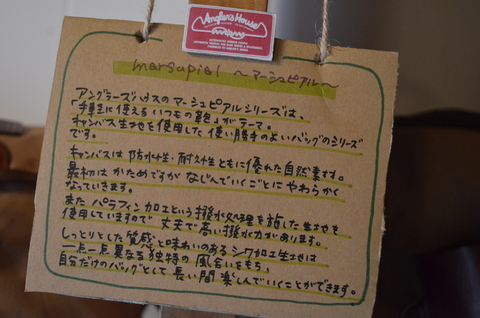 Angler's House
marsupial ～マーシュピアル～
アングラーズハウスのマーシュピアルシリーズは、
「手軽に使えるいつもの鞄」がテーマ。
キャンバス生地を使用した使い勝手のよいバッグのシリーズ
です。
キャンバスは防水性・耐久性ともに優れた自然素材。
最初はかためですがなじんでいくごとにやわらかく
なっていきます。
またパラフィン加工という撥水処理を施した生地を
使用していますので丈夫で高い撥水力があります。
しっとりとした質感と味わいのあるシワ加工生地は
一点一点異なる独特の風合いをもち、
自分だけのバッグとして長い間楽しんでいくことができます。